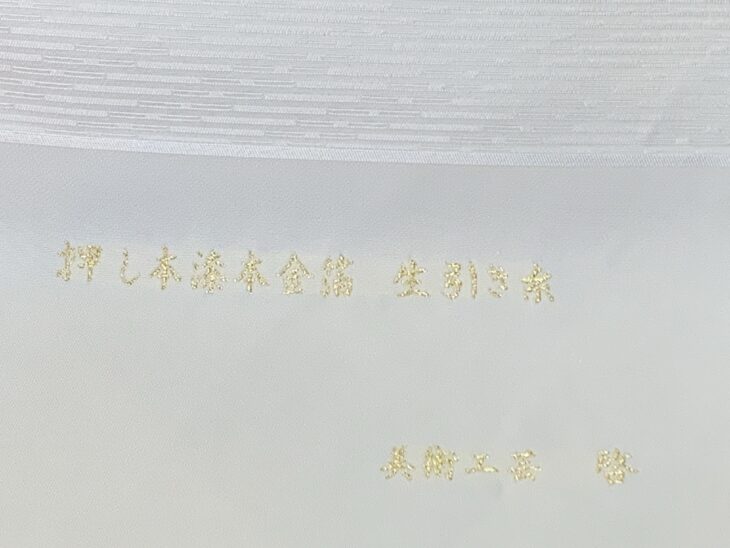 押し本漆本金箔 生引き糸
美術工芸 啓